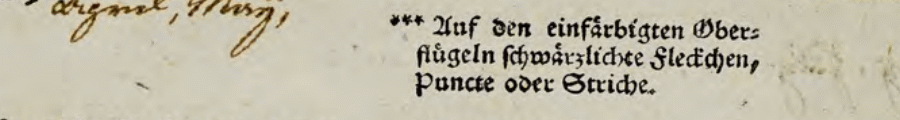 Aprel, May,
*** Auf den einfärbigten Ober⸗
flügeln ſchwärzlichte Fleckchen,
Puncte oder Striche.